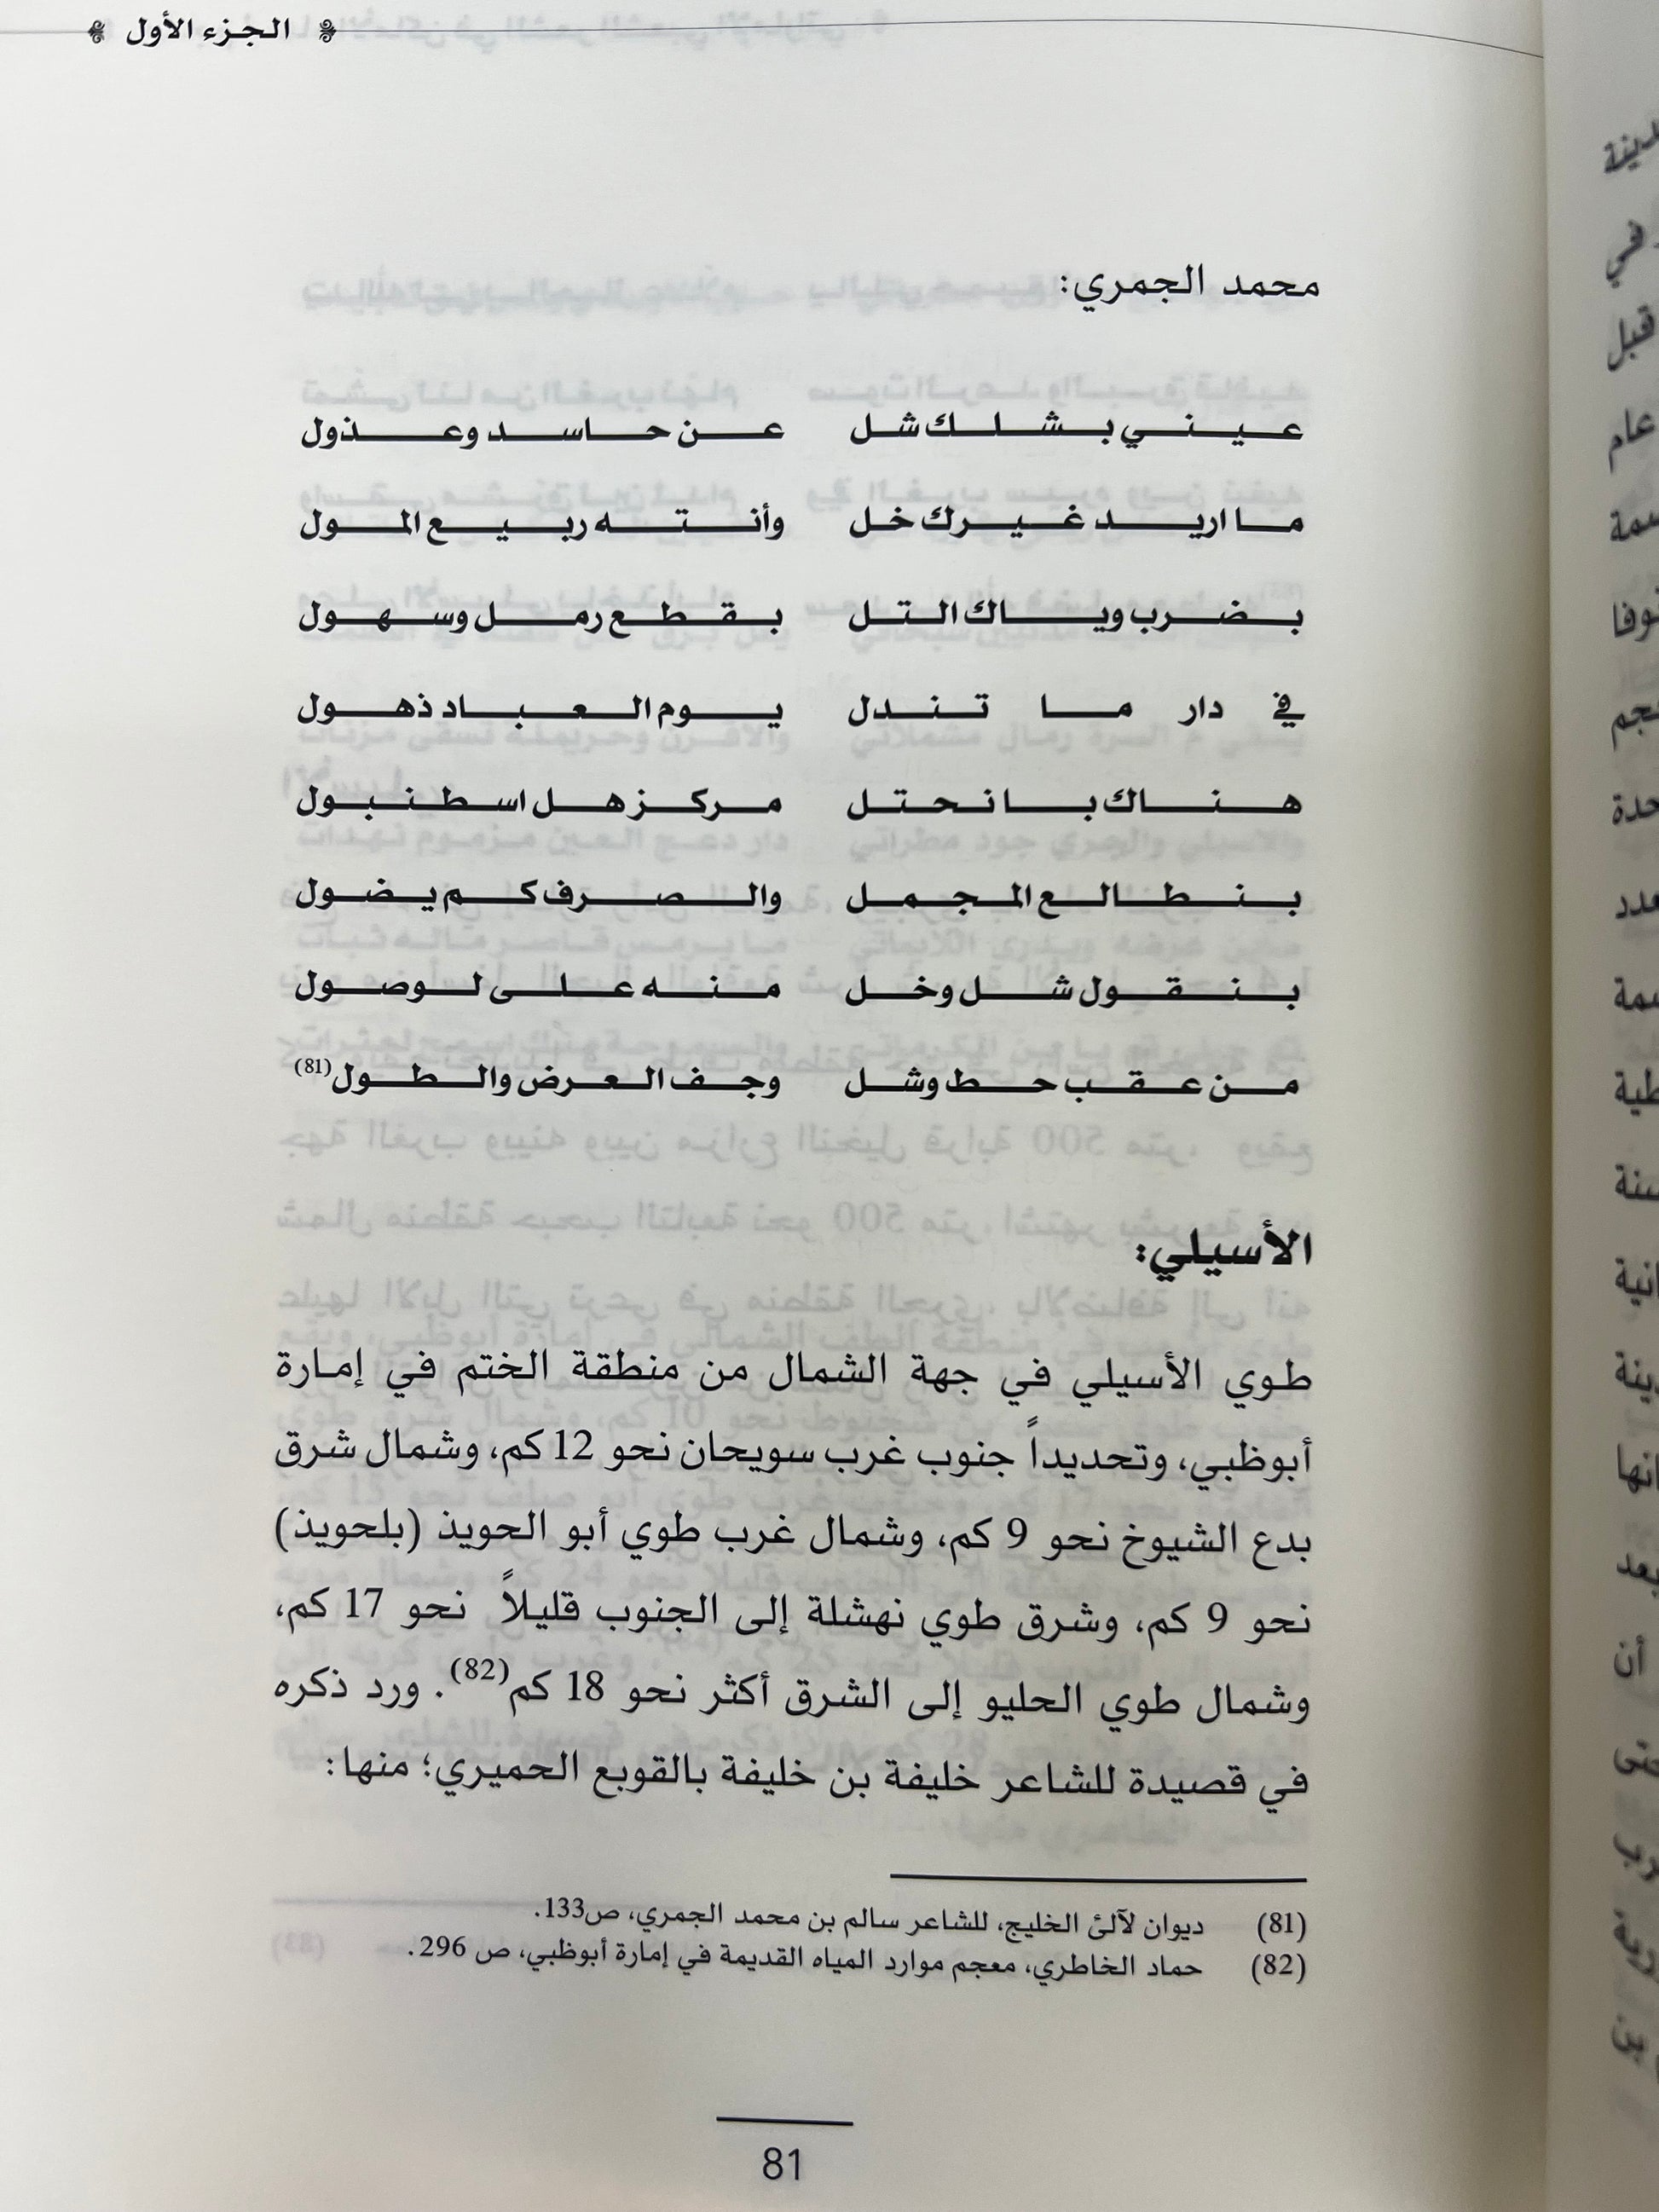 الجزء الأول
محمد الجمري:
عيني بشلك شل عن حاسد وعذول
ما اريد غيرك خل وأنته ربيع المول
بضرب وياك التل بقطع رمل وسهول
في دار ما تندل يوم العباد ذهول
هناك بانحتل مركز هل اسطنبول
بنطالع المجمل والصرف كم يضول
بنقول شل وخل منه على لوصول
من عقب حط وشل وجف العرض والطول(81)
الأسيلي:
طوي الأسيلي في جهة الشمال من منطقة الختم في إمارة
أبوظبي، وتحديداً جنوب غرب سويحان نحو 12 كم، وشمال شرق
بدع الشيوخ نحو 9 كم، وشمال غرب طوي أبو الحويذ (بلحويذ)
نحو 9 كم، وشرق طوي نهشلة إلى الجنوب قليلاً نحو 17 كم،
وشمال طوي الحليو إلى الشرق أكثر نحو 18 كم(82). ورد ذكره
في قصيدة للشاعر خليفة بن خليفة بالقوبع الحميري؛ منها:
(81) ديوان لآلئ الخليج، للشاعر سالم بن محمد الجمري، ص133.
(82) حماد الخاطري، معجم موارد المياه القديمة في إمارة أبوظبي، ص 296.
81
دينة
في
قبل
عام
سمة
حدة
سنة
انية
انها
أن